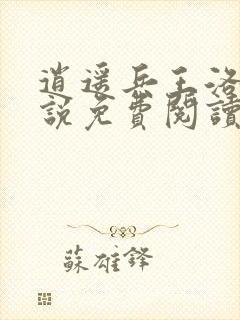 逍遥兵王洛
說免費閱讀
蘇雄鋒